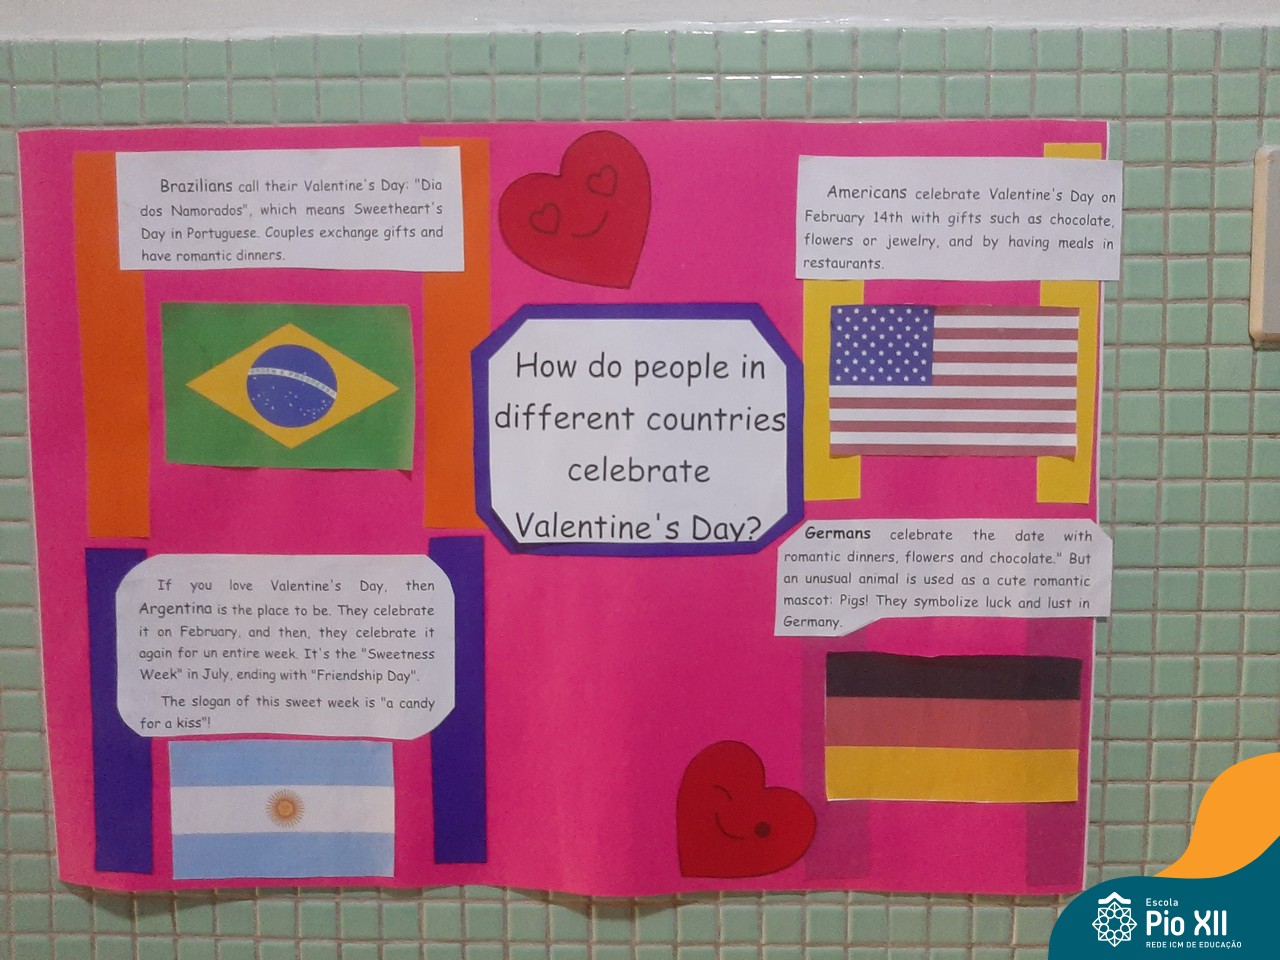 Brazilians call their Valentine's Day: "Dia
dos Namorados", which means Sweetheart's
Day in Portuguese. Couples exchange gifts and
have romantic dinners.
Americans celebrate Valentine's Day on
February 14th with gifts such as chocolate,
flowers or jewelry, and by having meals in
restaurants.
How do people in
different countries
celebrate
Valentine's Day?
If you love Valentine's Day, then
Argentina is the place to be. They celebrate
it on February, and then, they celebrate it
again for un entire week. It's the "Sweetness
Week" in July, ending with "Friendship Day".
The slogan of this sweet week is "a candy
for a kiss"!
Germans celebrate the date with
romantic dinners, flowers and chocolate." But
an unusual animal is used as a cute romantic
mascot: Pigs! They symbolize luck and lust in
Germany.
Escola
Pio XII
REDE ICM DE EDUCAÇÃO